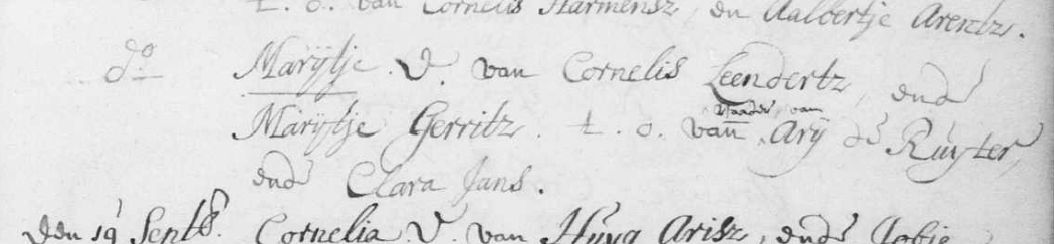 t. o. van Cornelis Harmensz, en Aalbertje Arentz.
do Marijtje. D. van Cornelis Leendertz, ende
Marijtje Gerritz. t. o. van Vaader van Arij de Ruyter,
ende Clara Jans.
Den 19 Septb. Cornelia. D. van Huyg Arisz, ende Aobje